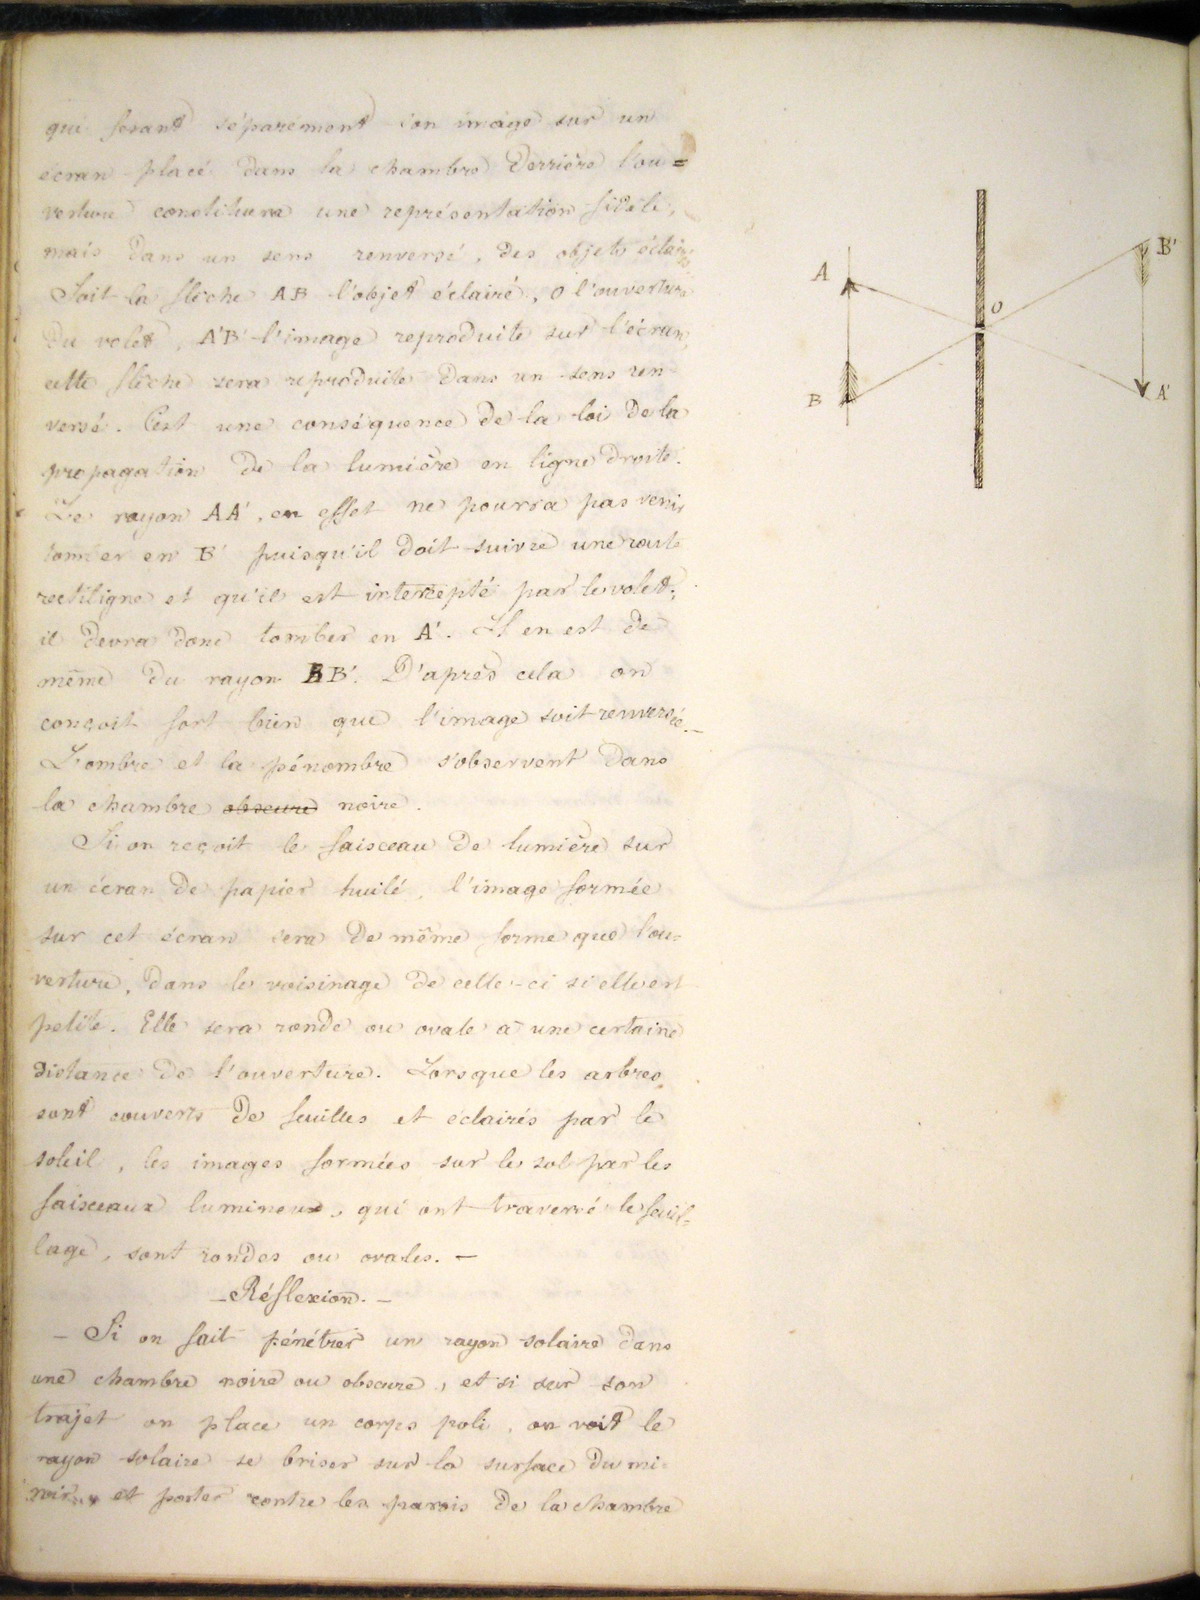 qui ferant séparément son image sur un
écran placé dans la chambre derrière l'ou=
verture constituera une représentation fidèle,
mais dans un sens renversé, des objets éclairés
Soit la flèche AB l'objet éclairé, O l'ouverture
du volet, A'B' l'image reproduite sur l'écran,
cette flèche sera reproduite dans un sens ren
versé. C'est une conséquence de la loi de la
propagation de la lumière en ligne droite.
Le rayon AA', en effet ne pourra pas venir
tomber en B' puisqu'il doit suivre une route
rectiligne et qu'il est intercepté par le volet;
il devra donc tomber en A'. Il en est de
même du rayon BB'. D'après cela on
conçoit fort bien que l'image soit renversée.-
L'ombre et la pénombre s'observent dans
la chambre obscure noire.
Si on reçoit le faisceau de lumière sur
un écran de papier huilé, l'image formée
sur cet écran sera de même forme que l'ou-
verture, dans le voisinage de celle-ci si elle est
petite. Elle sera ronde ou ovale à une certaine
distance de l'ouverture. Lorsque les arbres
sont couverts de feuilles et éclairés par le
soleil, les images formées sur le sol par les
faisceaux lumineux, qui ont traversé le feuil-
lage, sont rondes ou ovales. -
- Réflexion. -
- Si on fait pénétrer un rayon solaire dans
une chambre noire ou obscure, et si sur son
trajet on place un corps poli, on voit le
rayon solaire se briser sur la surface du mi-
roir et porter contre les parois de la chambre
A
B
O
B'
A'